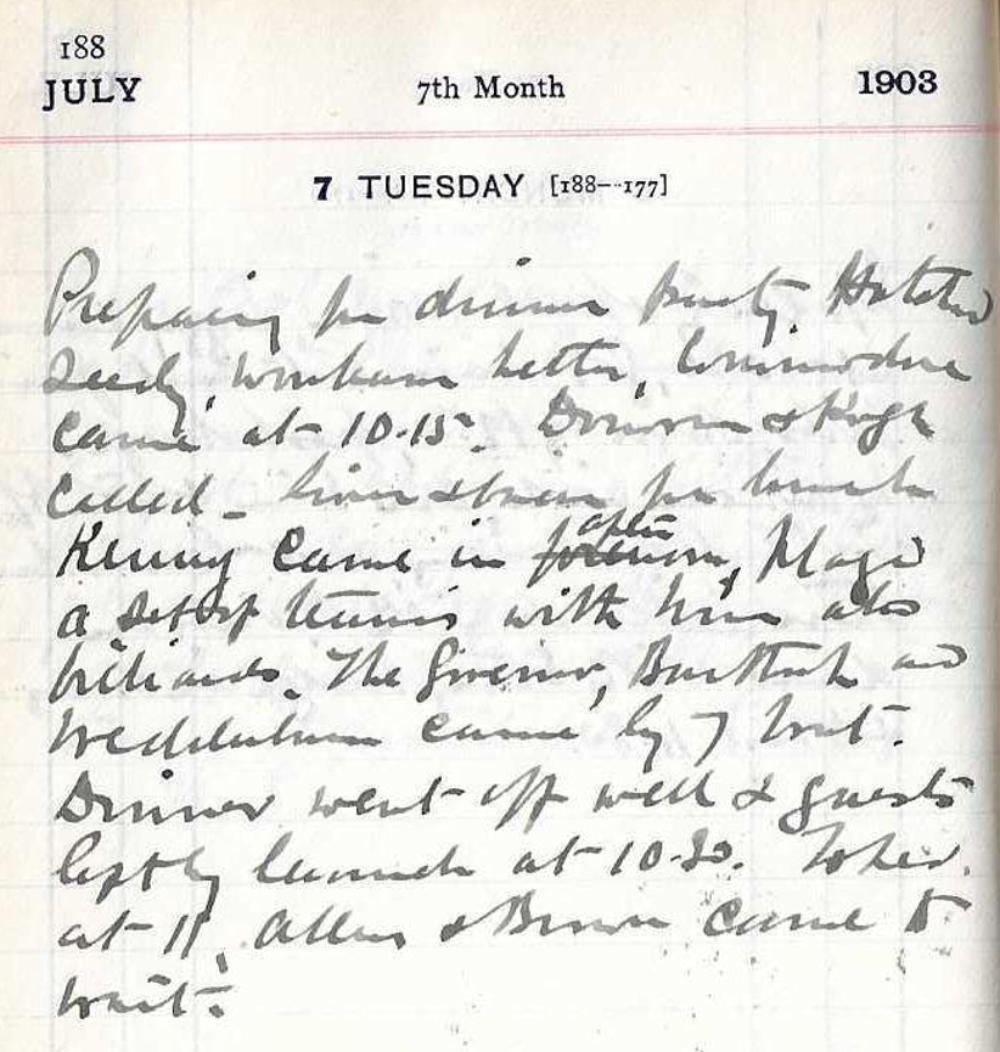 188
JULY 7th Month 1903
7 TUESDAY [188–177]
Preparing for dinner party.
seedy, better, Commodore
came at 10.15. &
called – for
Kenny came in forenoon after, Played
a set of tennis with him also
billiards. The Governor, and
Wedderburn came by 7 boat.
Dinner went off well & guests
left by launch at 10.30. To bed
at 11. Allen & Brown came to
wait.